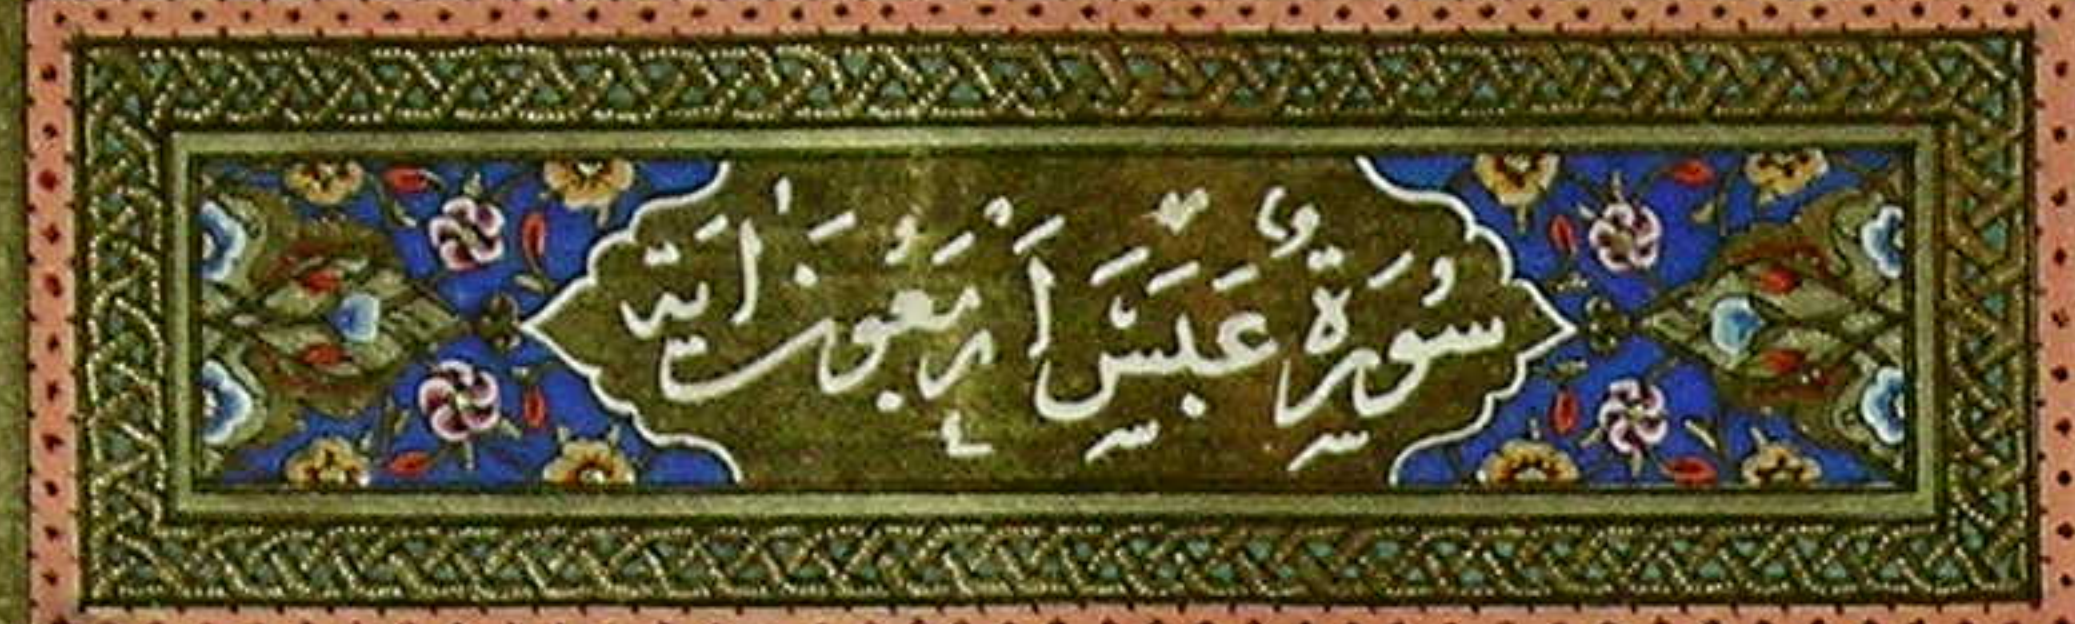 سُورَةُ عَبَسَ أَرْبَعُونَ اٰيَة